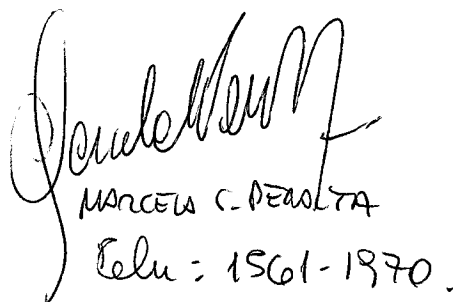 MARCELA C. PERALTA
Celu: 1561-1970.